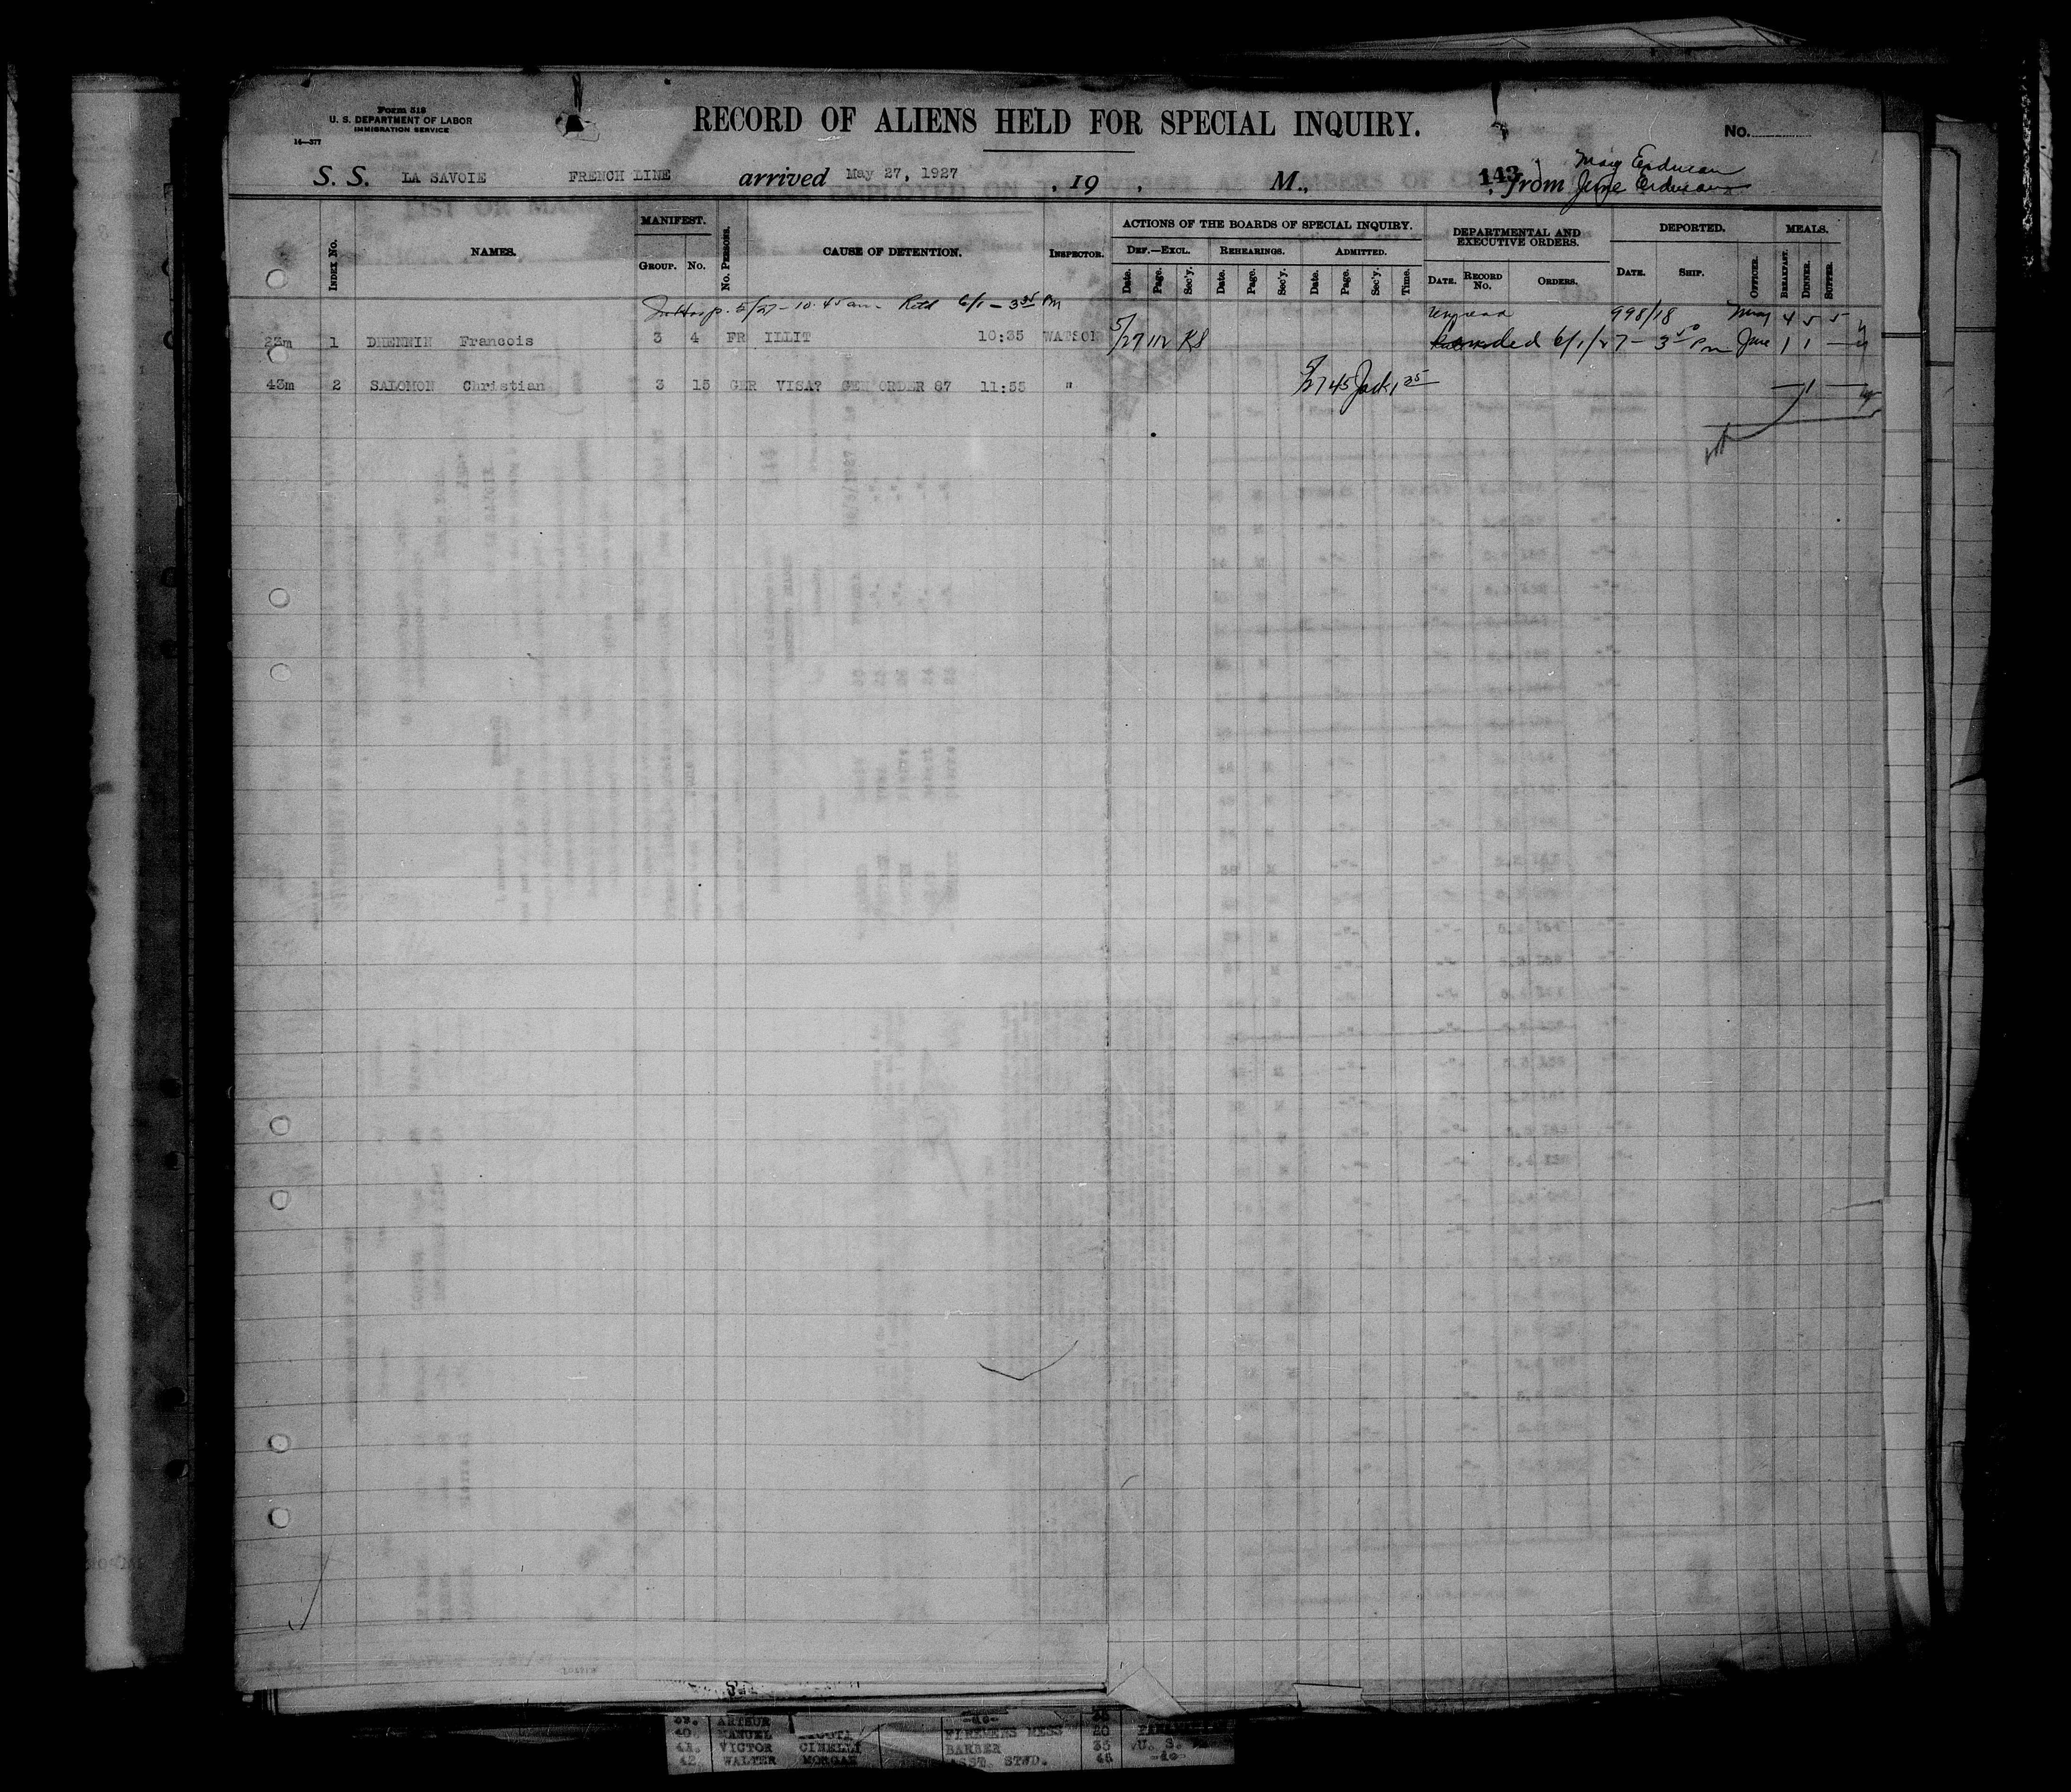 Form 518
U. S. DEPARTMENT OF LABOR
IMMIGRATION SERVICE
14—377
RECORD OF ALIENS HELD FOR SPECIAL INQUIRY.
No.
S. S. LA SAVOIE FRENCH LINE arrived May 27, 1927 , 19 , M., 143 , from
INDEX NO.
NAMES.
MANIFEST.
GROUP. NO.
NO. PERSONS.
CAUSE OF DETENTION.
INSPECTOR.
ACTIONS OF THE BOARDS OF SPECIAL INQUIRY.
DEF.—EXCL. REHEARINGS. ADMITTED.
Date. Page. Sec'y. Date. Page. Sec'y. Date. Page. Sec'y. Time.
DEPARTMENTAL AND
EXECUTIVE ORDERS.
DATE. RECORD NO. ORDERS.
DEPORTED.
DATE. SHIP.
OFFICER.
MEALS.
BREAKFAST. DINNER. SUPPER.
In Hosp. 5/27 - 10.45 am. Retd 6/1 - 3 35 PM 998/18 May 4 5 5
23m 1 DHENNIN Francois 3 4 FR ILLIT 10:35 WATSON 5/27 112 KS 6/1/27 - 3 50 Pm June 1 1 —
43m 2 SALOMON Christian 3 15 GER VISA? GEN ORDER 87 11:55 " 5/27 45 Jack 1 35 — 1 —
39. ARTHUR -do-
40. MANUEL FIREMENS MESS 20
41. VICTOR CINELLI BARBER 35 U. S.
42. WALTER MORGAN ASST STWD. 45 -do-